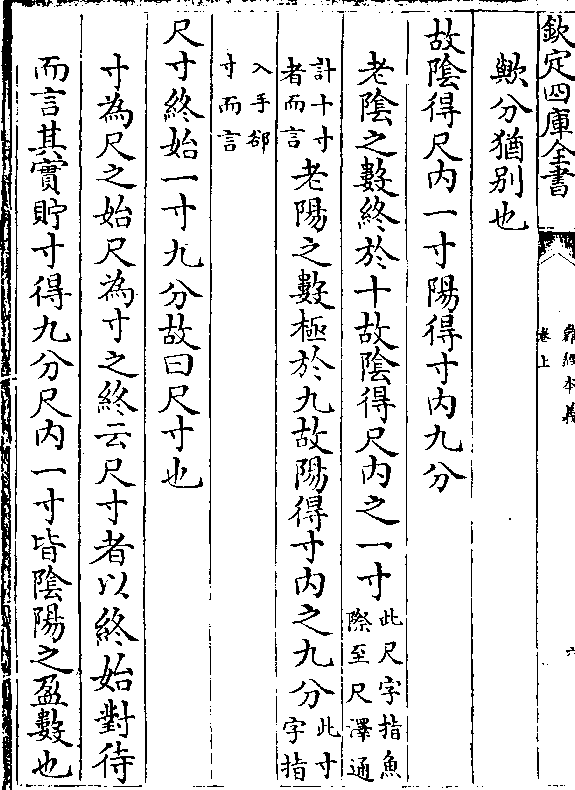 欽定四庫全書
難經本義
卷上
六
歟分猶别也
故陰得尺内一寸陽得寸内九分
老陰之數終於十故陰得尺内之一寸此尺字指魚際至尺澤通
計十寸者而言老陽之數極於九故陽得寸内之九分此寸字指
入手郤寸而言
尺寸終始一寸九分故曰尺寸也
寸為尺之始尺為寸之終云尺寸者以終始對待
而言其實貯寸得九分尺内一寸皆陰陽之盈數也